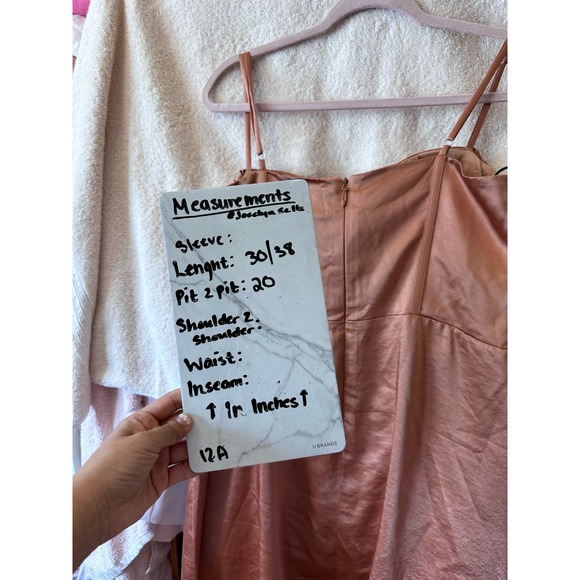 Measurements
@Joselyn Sells
Sleeve:
Lenght: 30/38
Pit 2 Pit: 20
Shoulder 2
Shoulder:
Waist:
Inseam:
↑ In Inches ↑
12A
U BRANDS